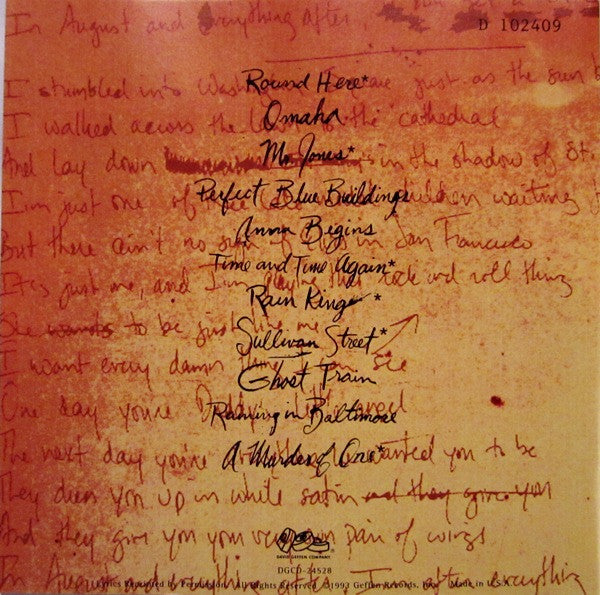 In August and everything after,
D 102409
I stumbled into are just as the sun
Round Here*
Omaha
I walked across the the cathedral
Mr. Jones*
And lay down in the shadow of St.
Perfect Blue Buildings
I'm just one of children waiting
Anna Begins
But there ain't no in San Francisco
Time and Time Again*
It's just me, and I'm playing that rock and roll thing
Rain King *
She wants to be just like me
Sullivan Street*
I want every damn thing I can see
Ghost Train
One day you're
Raining in Baltimore
The next day you're wanted you to be
A Murder of One*
They dress you up in white satin and they give you
And they give you your very own pair of wings
DAVID GEFFEN COMPANY
DGCD-24528
In August and everything after I want everything
Lyrics Reprinted by Permission. All Rights Reserved. ©1993 Geffen Records, Inc. Made in U.S.A.